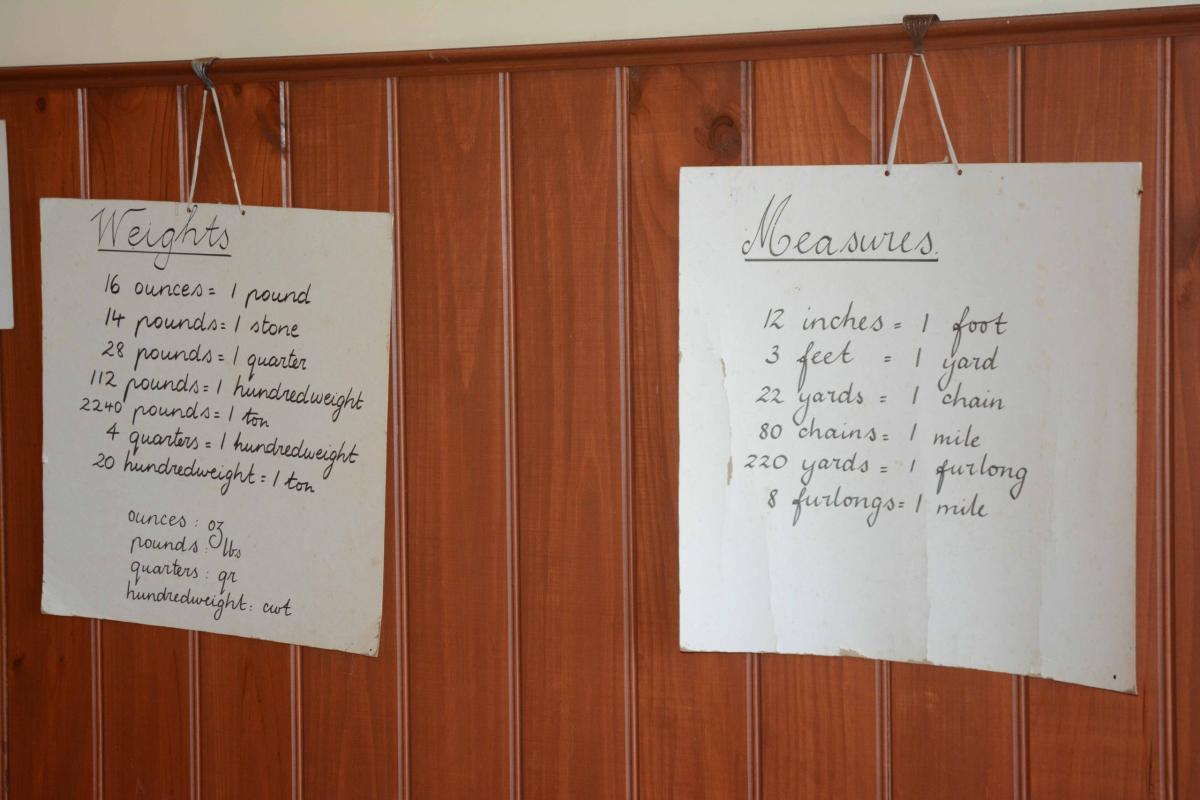 Weights
16 ounces = 1 pound
14 pounds = 1 stone
28 pounds = 1 quarter
112 pounds = 1 hundredweight
2240 pounds = 1 ton
4 quarters = 1 hundredweight
20 hundredweight = 1 ton
ounces : oz
pounds : lbs
quarters : qr
hundredweight : cwt
Measures.
12 inches = 1 foot
3 feet = 1 yard
22 yards = 1 chain
80 chains = 1 mile
220 yards = 1 furlong
8 furlongs = 1 mile